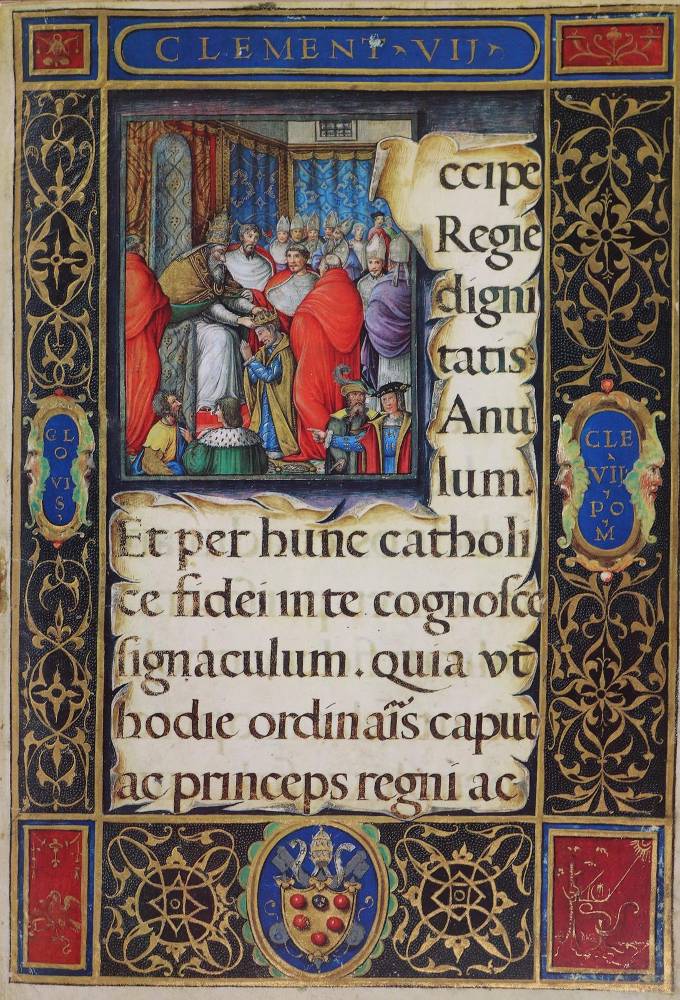 CLEMENT VIJ
ccipe
Regie
digni
tatis
Anu
lum.
Et per hunc catholi
ce fidei in te cognosce
signaculum. quia vt
hodie ordinaris caput
ac princeps regni ac
GL
OVI
S
CLE
VIJ
PO
M